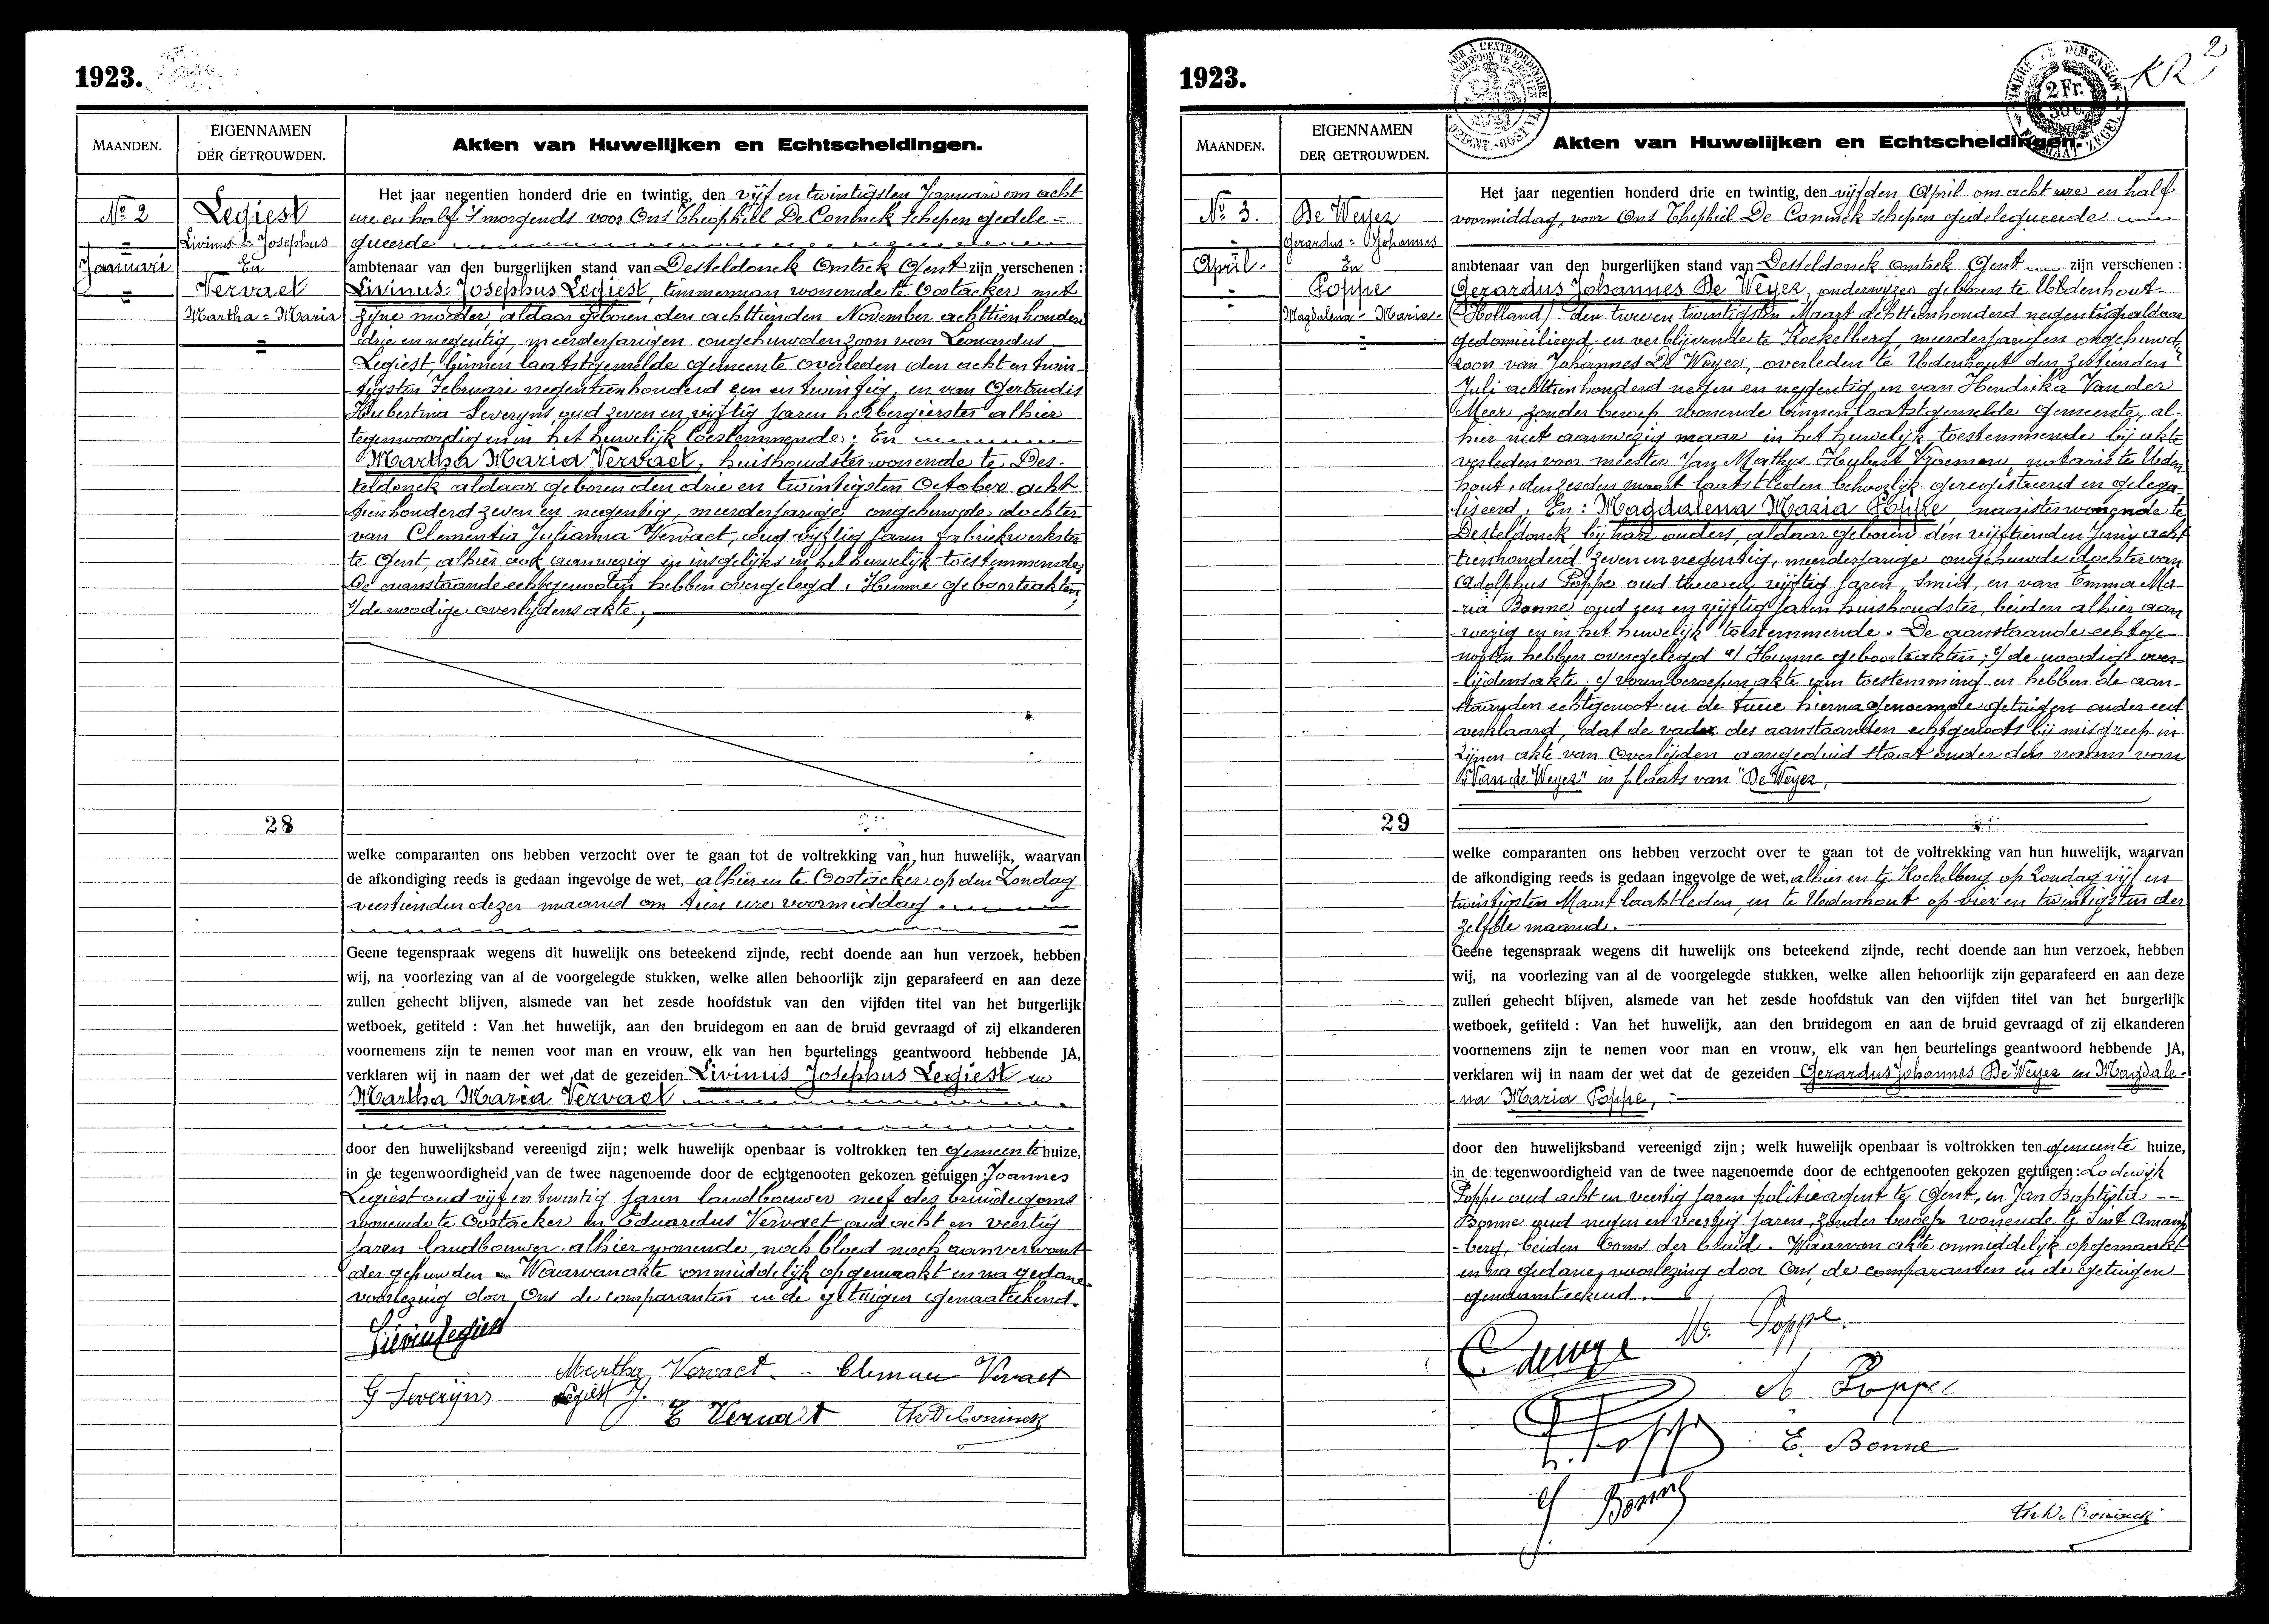 1923.
MAANDEN.
EIGENNAMEN
DER GETROUWDEN.
Akten van Huwelijken en Echtscheidingen.
Nº 2
Januari
Legiest
Livinus = Josephus
En
Vervaet
Martha = Maria
28
Het jaar negentien honderd drie en twintig, den vijf en twintigsten Januari om acht
ure en half 's morgends voor Ons Theophiel De Coninck schepen gedele =
gueerde
ambtenaar van den burgerlijken stand van Desteldonck Omtrek Gent zijn verschenen :
Livinus = Josephus Legiest, timmerman wonende te Oostacker met
zijne moeder, aldaar geboren den achttienden November achttienhonderd
drie en negentig, meerderjarigen ongehuwden zoon van Leonardus
Legiest, binnen laatstgemelde gemeente overleden den acht en twin-
tigsten Februari negentienhonderd een en twintig, en van Gertrudis
Hubertina Severyns, oud zeven en vijftig jaren herbergierster alhier
tegenwoordig en in het huwelijk toestemmende; En
Martha Maria Vervaet, huishoudster wonende te Des-
teldonck aldaar geboren den drie en twintigsten October acht
tienhonderd zeven en negentig, meerderjarige ongehuwde dochter
van Clementia Julianna Vervaet, oud vijftig jaren fabriekwerkster
te Gent, alhier ook aanwezig en insgelijks in het huwelijk toestemmende.
De aanstaande echtgenooten hebben overgelegd: Hunne geboorteakten,
de noodige overlijdensakte;
welke comparanten ons hebben verzocht over te gaan tot de voltrekking van hun huwelijk, waarvan
de afkondiging reeds is gedaan ingevolge de wet, alhier en te Oostacker op den Zondag
veertienden dezer maand om tien ure voormiddag.
Geene tegenspraak wegens dit huwelijk ons beteekend zijnde, recht doende aan hun verzoek, hebben
wij, na voorlezing van al de voorgelegde stukken, welke allen behoorlijk zijn geparafeerd en aan deze
zullen gehecht blijven, alsmede van het zesde hoofdstuk van den vijfden titel van het burgerlijk
wetboek, getiteld : Van het huwelijk, aan den bruidegom en aan de bruid gevraagd of zij elkanderen
voornemens zijn te nemen voor man en vrouw, elk van hen beurtelings geantwoord hebbende JA,
verklaren wij in naam der wet dat de gezeiden Livinus Josephus Legiest en
Martha Maria Vervaet
door den huwelijksband vereenigd zijn; welk huwelijk openbaar is voltrokken ten gemeente huize,
in de tegenwoordigheid van de twee nagenoemde door de echtgenooten gekozen getuigen : Joannes
Legiest oud vijf en twintig jaren landbouwer neef des bruidegoms
wonende te Oostacker en Eduardus Vervaet oud acht en veertig
jaren landbouwer alhier wonende, noch bloed noch aanverwant
der gehuwden Waarvan akte onmiddelijk opgemaakt en na gedane
voorlezing door Ons de comparanten en de getuigen genaamteekend.
Lievin Legiest
Martha Vervaet. Clemence Vervaet
G Severijns Legiest J.
E Vervaet Th De Coninck
1923.
2
KR
TIMBRE DE DIMENSION
2 Fr.
50 c.
MAANDEN.
EIGENNAMEN
DER GETROUWDEN.
Akten van Huwelijken en Echtscheidingen.
Nº 3.
April.
De Weyer
Gerardus = Johannes
En
Poppe
Magdalena = Maria
29
Het jaar negentien honderd drie en twintig, den vijfden April om acht ure en half
voormiddag, voor Ons Thephiel De Coninck schepen gedelegueerde
ambtenaar van den burgerlijken stand van Desteldonck omtrek Gent zijn verschenen :
Gerardus Johannes De Weyer, onderwijzer geboren te Udenhout
(Holland) den twee en twintigsten Maart achttienhonderd negentig aldaar
gedomicilieerd en verblijvende te Koekelberg, meerderjarigen ongehuwd
zoon van Johannes De Weyer, overleden te Udenhout den zestienden
Juli achttienhonderd negen en negentig en van Hendrika Van der
Meer, zonder beroep wonende binnen laatstgemelde gemeente, al-
hier niet aanwezig maar in het huwelijk toestemmende bij akte
verleden voor meester Jan Mathys Hubert Vroemen, notaris te Uden
hout, den zesden maart laatstleden behoorlijk geregistreerd en gelega-
liseerd. En: Magdalena Maria Poppe, naaister wonende te
Desteldonck bij hare ouders, aldaar geboren den vijftienden Juni acht
tienhonderd zeven en negentig, meerderjarige ongehuwde dochter van
Adolphus Poppe oud twee en vijftig jaren, smid, en van Emma Ma-
ria Bonne oud een en vijftig jaren huishoudster, beiden alhier aan
wezig en in het huwelijk toestemmende. De aanstaande echtge-
nooten hebben overgelegd a/ Hunne geboorteakten; b/ de noodige over-
lijdensakte; c/ voren beroepen akte van toestemming en hebben de aan-
staanden echtgenoot en de twee hierna genoemde getuigen onder eed
verklaard, dat de vader des aanstaanden echtgenoots bij misgreep in
zijnen akte van Overlijden aangeduid staat onder den naam van
"Van de Weyer" in plaats van "De Weyer,
welke comparanten ons hebben verzocht over te gaan tot de voltrekking van hun huwelijk, waarvan
de afkondiging reeds is gedaan ingevolge de wet, alhier en te Koekelberg op Zondag vijf en
twintigsten Maart laatstleden, en te Udenhout op vier en twintigsten der
zelfde maand.
Geene tegenspraak wegens dit huwelijk ons beteekend zijnde, recht doende aan hun verzoek, hebben
wij, na voorlezing van al de voorgelegde stukken, welke allen behoorlijk zijn geparafeerd en aan deze
zullen gehecht blijven, alsmede van het zesde hoofdstuk van den vijfden titel van het burgerlijk
wetboek, getiteld : Van het huwelijk, aan den bruidegom en aan de bruid gevraagd of zij elkanderen
voornemens zijn te nemen voor man en vrouw, elk van hen beurtelings geantwoord hebbende JA,
verklaren wij in naam der wet dat de gezeiden Gerardus Johannes De Weyer en Magdale-
na Maria Poppe,
door den huwelijksband vereenigd zijn; welk huwelijk openbaar is voltrokken ten gemeente huize,
in de tegenwoordigheid van de twee nagenoemde door de echtgenooten gekozen getuigen : Lodewijk
Poppe oud acht en veertig jaren politieagent te Gent, en Jan Baptista
Bonne oud negen en veertig jaren, zonder beroep wonende te Sint Amands
berg, beiden Ooms der bruid. Waarvan akte onmiddelijk opgemaakt
en na gedane voorlezing door Ons, de comparanten en de getuigen
genaamteekend.
M. Poppe
A Poppe
E. Bonne
Bonne
Th De Coninck